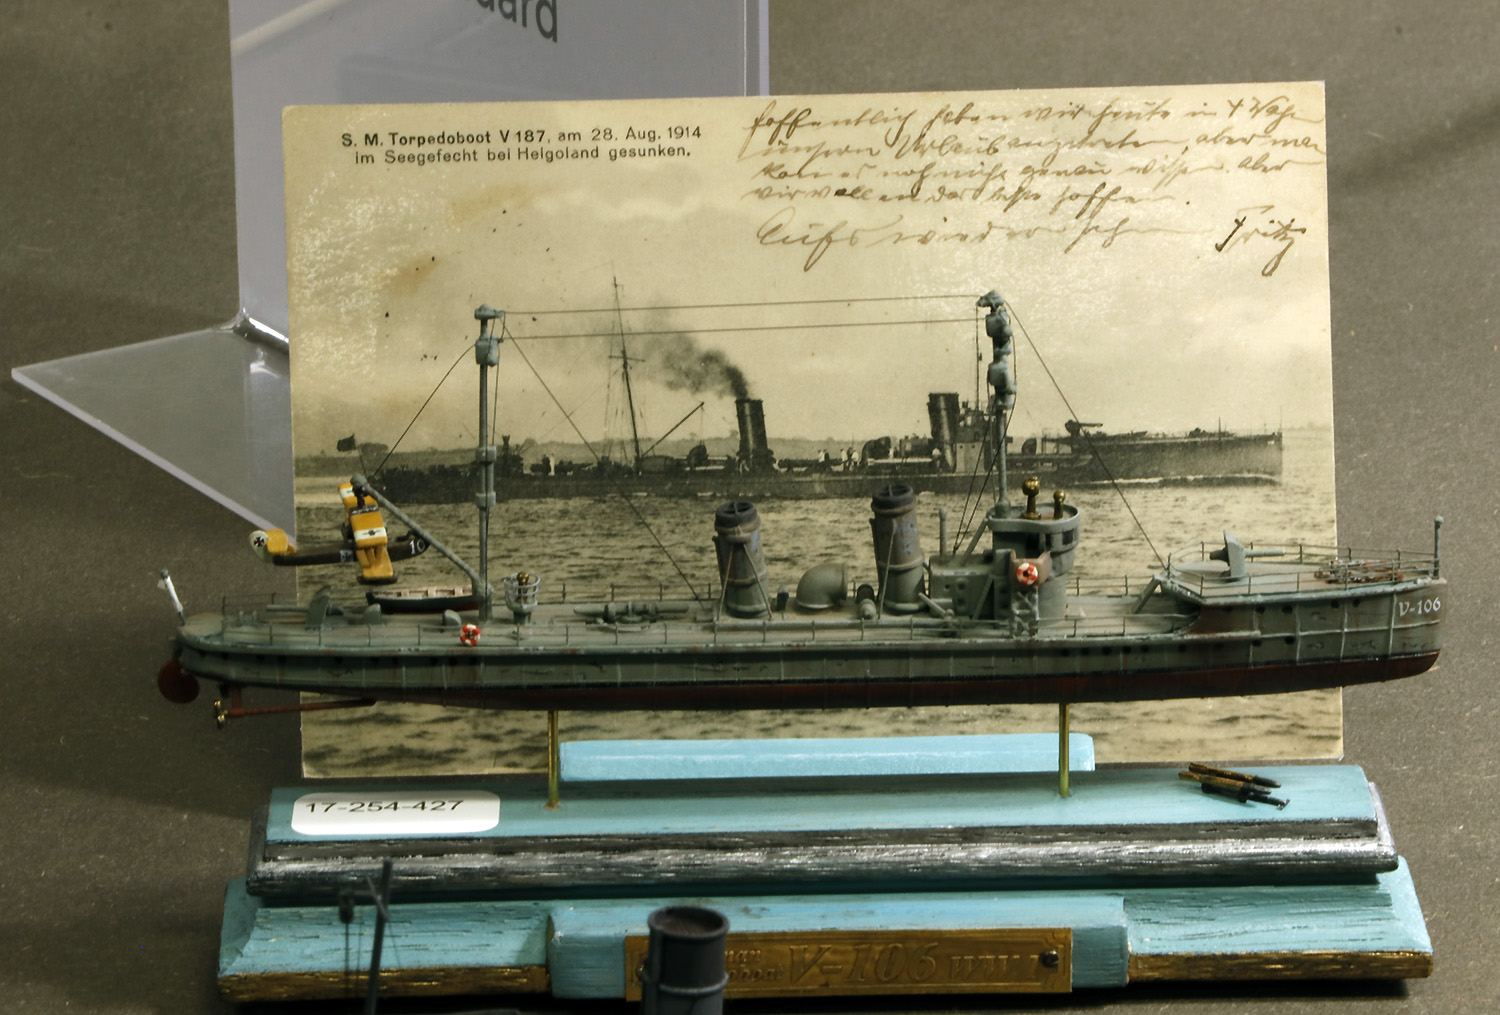 uard
S. M. Torpedoboot V 187, am 28. Aug. 1914
im Seegefecht bei Helgoland gesunken.
Hoffentlich haben wir heute in 4 Woch
unsern Urlaub angetreten, aber man
kan es noch nicht genau wissen. aber
wir wollen das beste hoffen.
Aufs wiedersehn Fritz
10
V-106
17-254-427
V-106 WW I